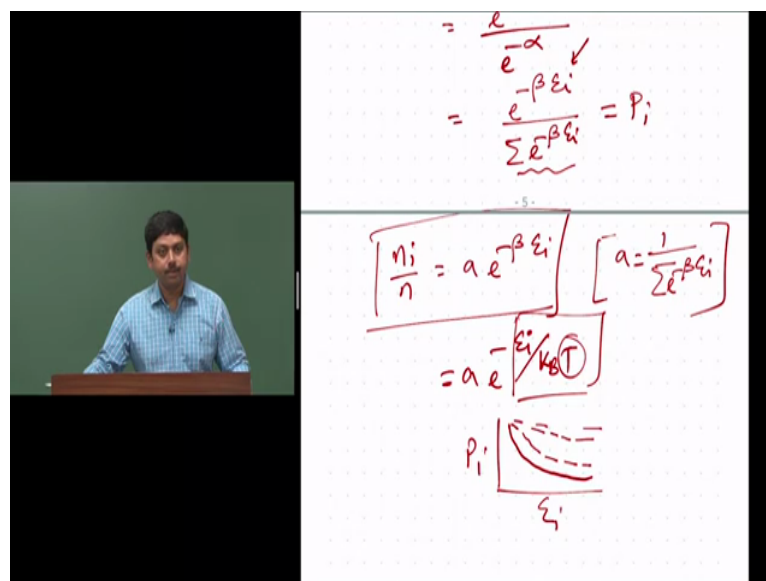 = e / e^-α
= e^-βεi / Σ e^-βεi = Pi
- 5 -
ni/n = a e^-βεi [ a = 1 / Σ e^-βεi ]
= a e^- εi/kBT
Pi
εi